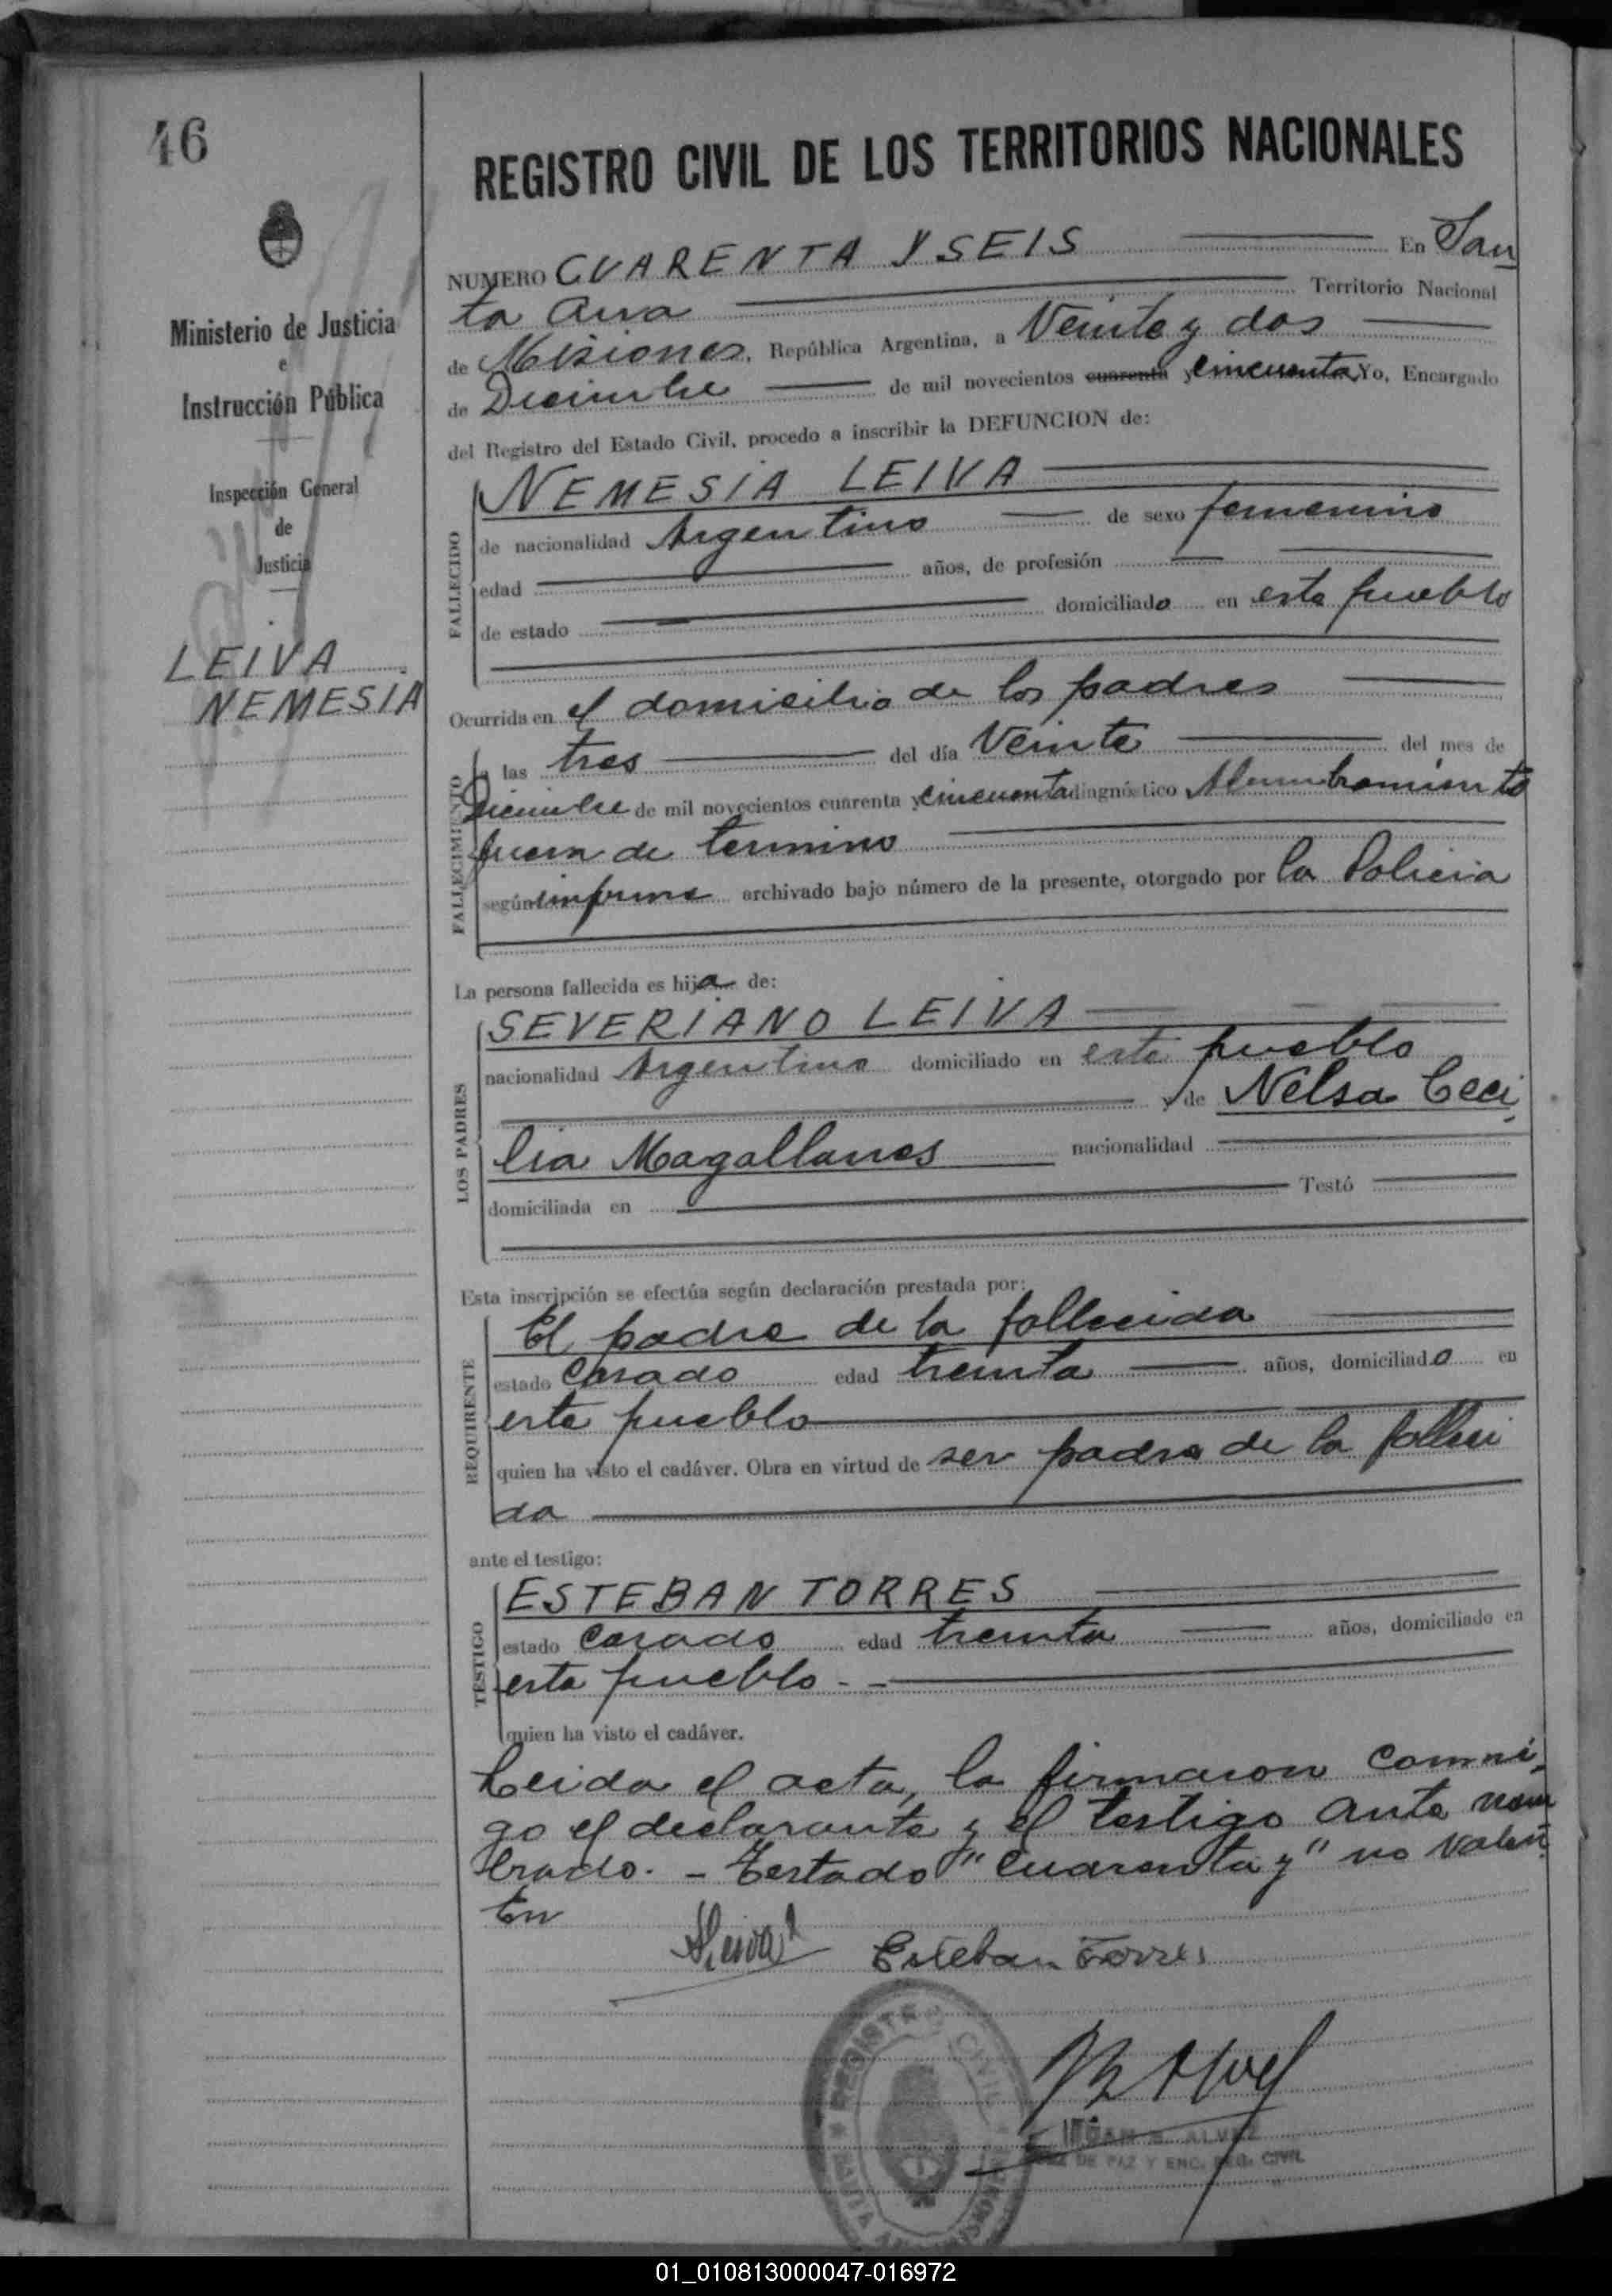 46
Ministerio de Justicia
e
Instrucción Pública
Inspección General
de
Justicia
LEIVA
NEMESIA
REGISTRO CIVIL DE LOS TERRITORIOS NACIONALES
NUMERO CUARENTA Y SEIS En San
ta Ana Territorio Nacional
de Misiones, República Argentina, a Veinte y dos
de Diciembre de mil novecientos cuarenta y cincuenta Yo, Encargado
del Registro del Estado Civil, procedo a inscribir la DEFUNCION de:
FALLECIDO
NEMESIA LEIVA
de nacionalidad Argentina de sexo femenino
edad años, de profesión
de estado domiciliada en este pueblo
Ocurrida en el domicilio de los padres
FALLECIMIENTO
a las tres del día Veinte del mes de
Diciembre de mil novecientos cuarenta y cincuenta diagnóstico Alumbramiento
fuera de termino
según informe archivado bajo número de la presente, otorgado por la Policia
La persona fallecida es hija de:
LOS PADRES
SEVERIANO LEIVA
nacionalidad Argentina domiciliado en este pueblo
y de Nelsa Ceci
lia Magallanes nacionalidad
domiciliada en Testó
Esta inscripción se efectúa según declaración prestada por:
REQUIRENTE
El padre de la fallecida
estado Casado edad treinta años, domiciliado en
este pueblo
quien ha visto el cadáver. Obra en virtud de ser padre de la falleci
da
ante el testigo:
TESTIGO
ESTEBAN TORRES
estado Casado edad treinta años, domiciliado en
este pueblo
quien ha visto el cadáver.
Leida el acta, la firmaron conmi
go el declarante y el testigo ante nom
brado. - Testado "cuarenta y" no valen
En
SLeiva Esteban Torres
REGISTRO CIVIL
SANTA ANA
MISIONES
ALVEZ
DE PAZ Y ENC. REG. CIVIL
01_010813000047-016972